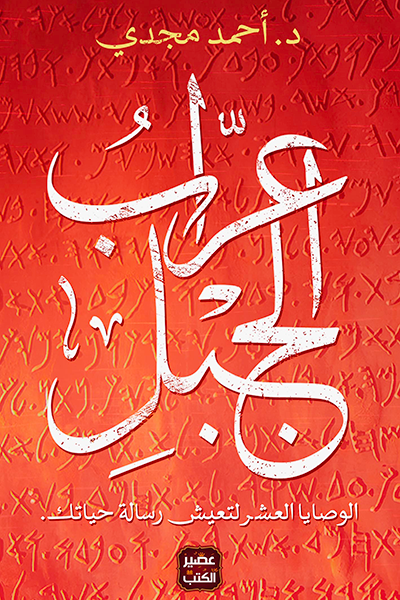 د. أحمد مجدي
عرَّابُ
الجبلِ
الوصايا العشر لتعيش رسالة حياتك.
عصير
الكتب